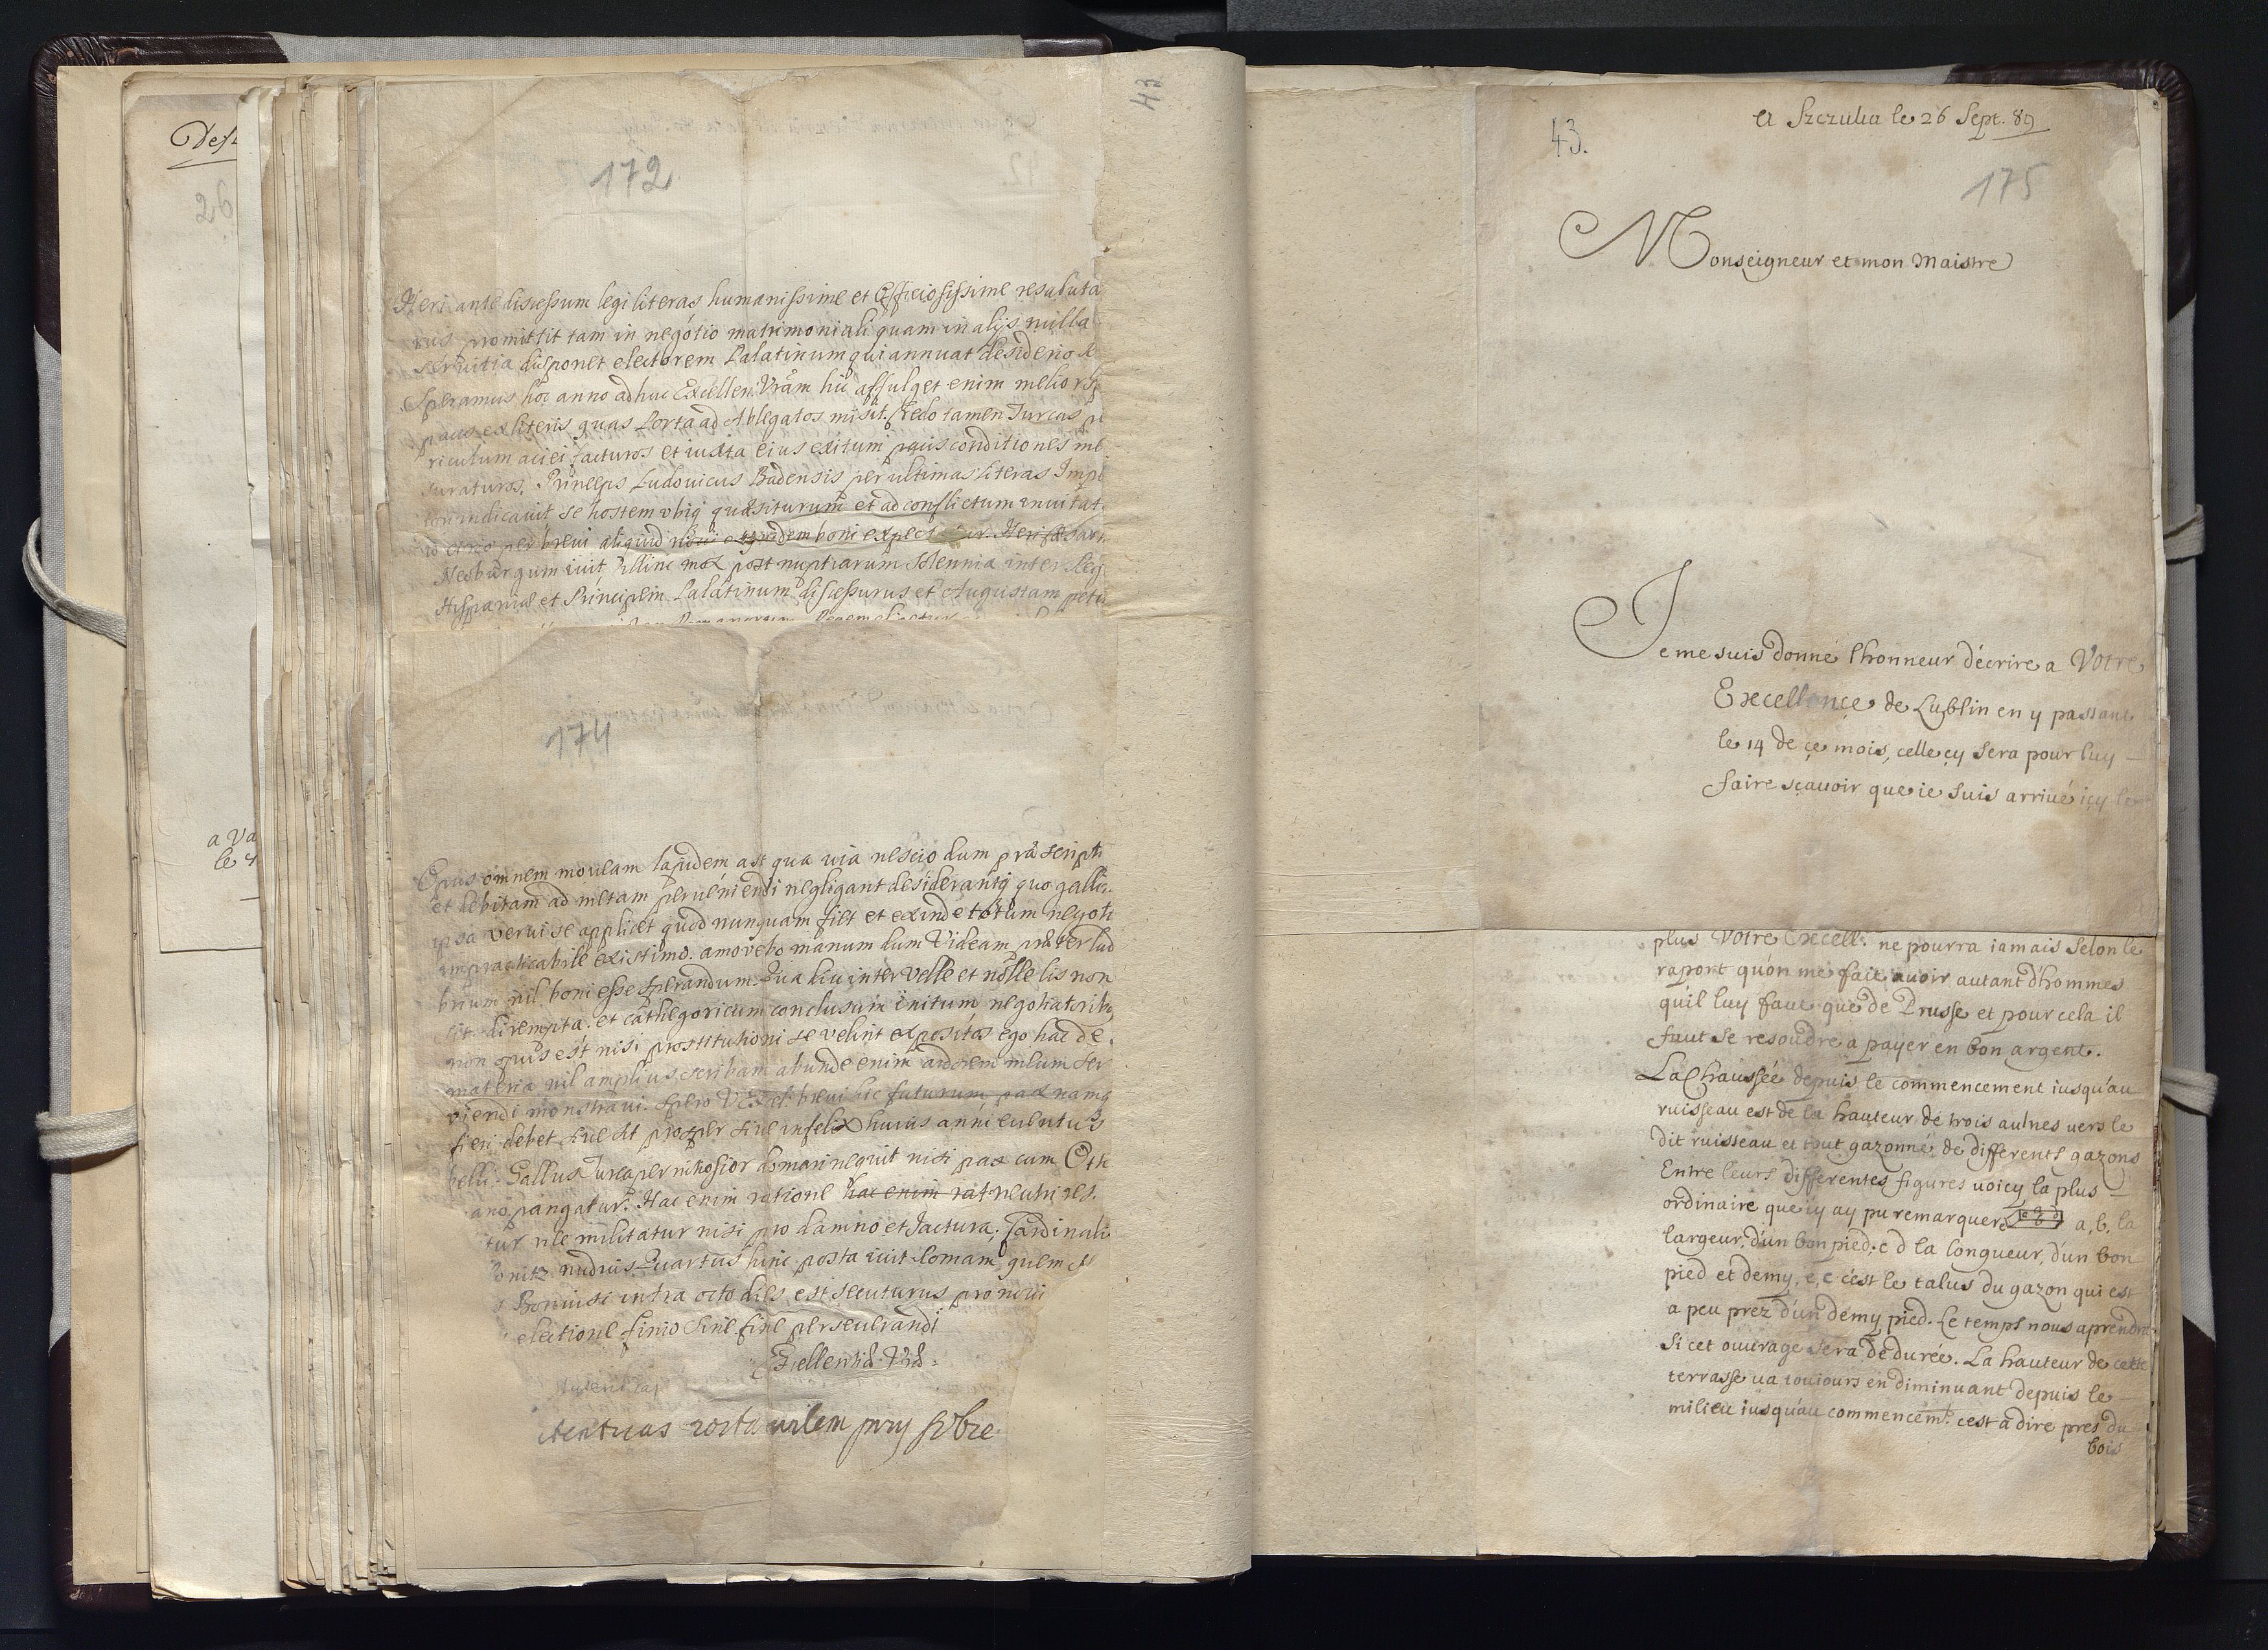 Desp
26
a Va
le 4
43
172
Heri ante discessum legi literas humanissime et officiosissime resaluta
rus promittit tam in negótio matrimoniali quam in alijs nulla
servitia disponet electorem Palatinum qui annuat desiderio
Speramus hoc anno adhuc Excellen. Vrãm hic affulget enim melior
pacis ex literis quas Porta ad Ablegatos misit. Credo tamen Turcas
riculum aciei facturos et iuxta eius exitum pacis conditiones me
suraturos. Princeps Ludovicus Badensis per ultimas literas
indicauit se hostem vbiq quæsiturum et ad conflictum inuitat
brevi aliquid boni
Neoburgum iuit illinc mox post nuptiarum solennia inter Reg
Hispaniæ et Principem Palatinum discessurus et Augustam petit
174
Opus omnem moueam lapidem ast qua uia nescio dum præscripti
et debitam ad metam perueniendi negligant desiderantq quo
ipsa verui se applicet quod nunquam fiet et exinde totum negoti
impracticabile existimo. amovebo manum dum Videam præter lud
brium nil boni esse sperandum. Qua diu inter velle et nolle lis non
sit dirempta. et cathegoricum conclusum initum negotiatorib
non opus est nisi prostitutioni se velint expositos ego hac de
materia nil amplius scribam abunde enim ardorem meum ser
uiendi monstraui. spero V Excel. breui hic futurum pax namq
fieri debet siue sit prosper siue infelix huius anni euentus
belli. Gallus domari nequit nisi pax cum Oth
ano pangatur. Hac enim ratione hac enim rat neutri res.
tur nec militatur nisi pro damno et Jactura. Cardinalis
onitz nudius Quartus hinc posta iuit Romam quem
Bonuisi intra octo dies est secuturus pro noui
electione finio sine fine perseuerandi
Excellentiæ Vræ
43.
A Szczuka le 26 Sept. 89
175
Monseigneur et mon Maistre
Je me suis donné l'honneur d'ecrire a Votre
Excellence de Lublin en y passant
le 14 de çe mois, celle çy sera pour luy
faire sçauoir que ie suis arriué içy
plus Votre Excell. ne pourra iamais selon le
raport qu'on me fait auoir autant d'hommes
qu'il luy faut que de Prusse et pour cela il
faut se resoudre a payer en bon argent.
La Chaussée depuis le commencement iusqu'au
ruisseau est de la hauteur de trois aulnes uers le
dit ruisseau et tout gazonné de differents gazons
Entre leurs differentes figures uoicy la plus
ordinaire que i'y ay pu remarquer a, b, la
largeur, d'un bon pied, c d la longueur, d'un bon
pied et demy, e, e c'est le talus du gazon qui est
a peu prez d'un demy pied. Le temps nous aprendra
Si cet ouurage sera de durée. La hauteur de cette
terrasse ua touiours en diminuant depuis le
milieu iusqu'au commencemt. c'est a dire pres du
bois